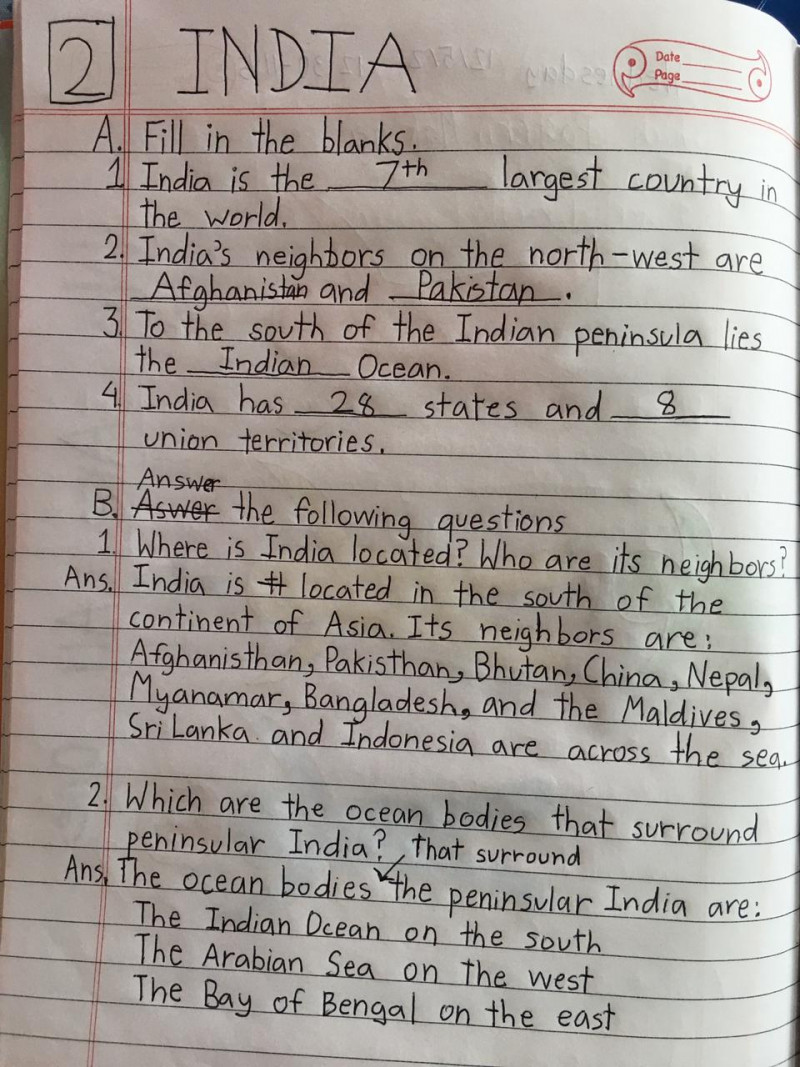 2 INDIA
Date
Page
A. Fill in the blanks.
1 India is the 7th largest country in
the world.
2. India's neighbors on the north-west are
Afghanistan and Pakistan.
3. To the south of the Indian peninsula lies
the Indian Ocean.
4. India has 28 states and 8
union territories.
Answer
B. Aswer the following questions
1. Where is India located? Who are its neighbors?
Ans. India is located in the south of the
continent of Asia. Its neighbors are:
Afghanisthan, Pakisthan, Bhutan, China, Nepal,
Myanamar, Bangladesh, and the Maldives,
Sri Lanka and Indonesia are across the sea.
2. Which are the ocean bodies that surround
peninsular India? that surround
Ans. The ocean bodies the peninsular India are:
The Indian Ocean on the south
The Arabian Sea on the west
The Bay of Bengal on the east